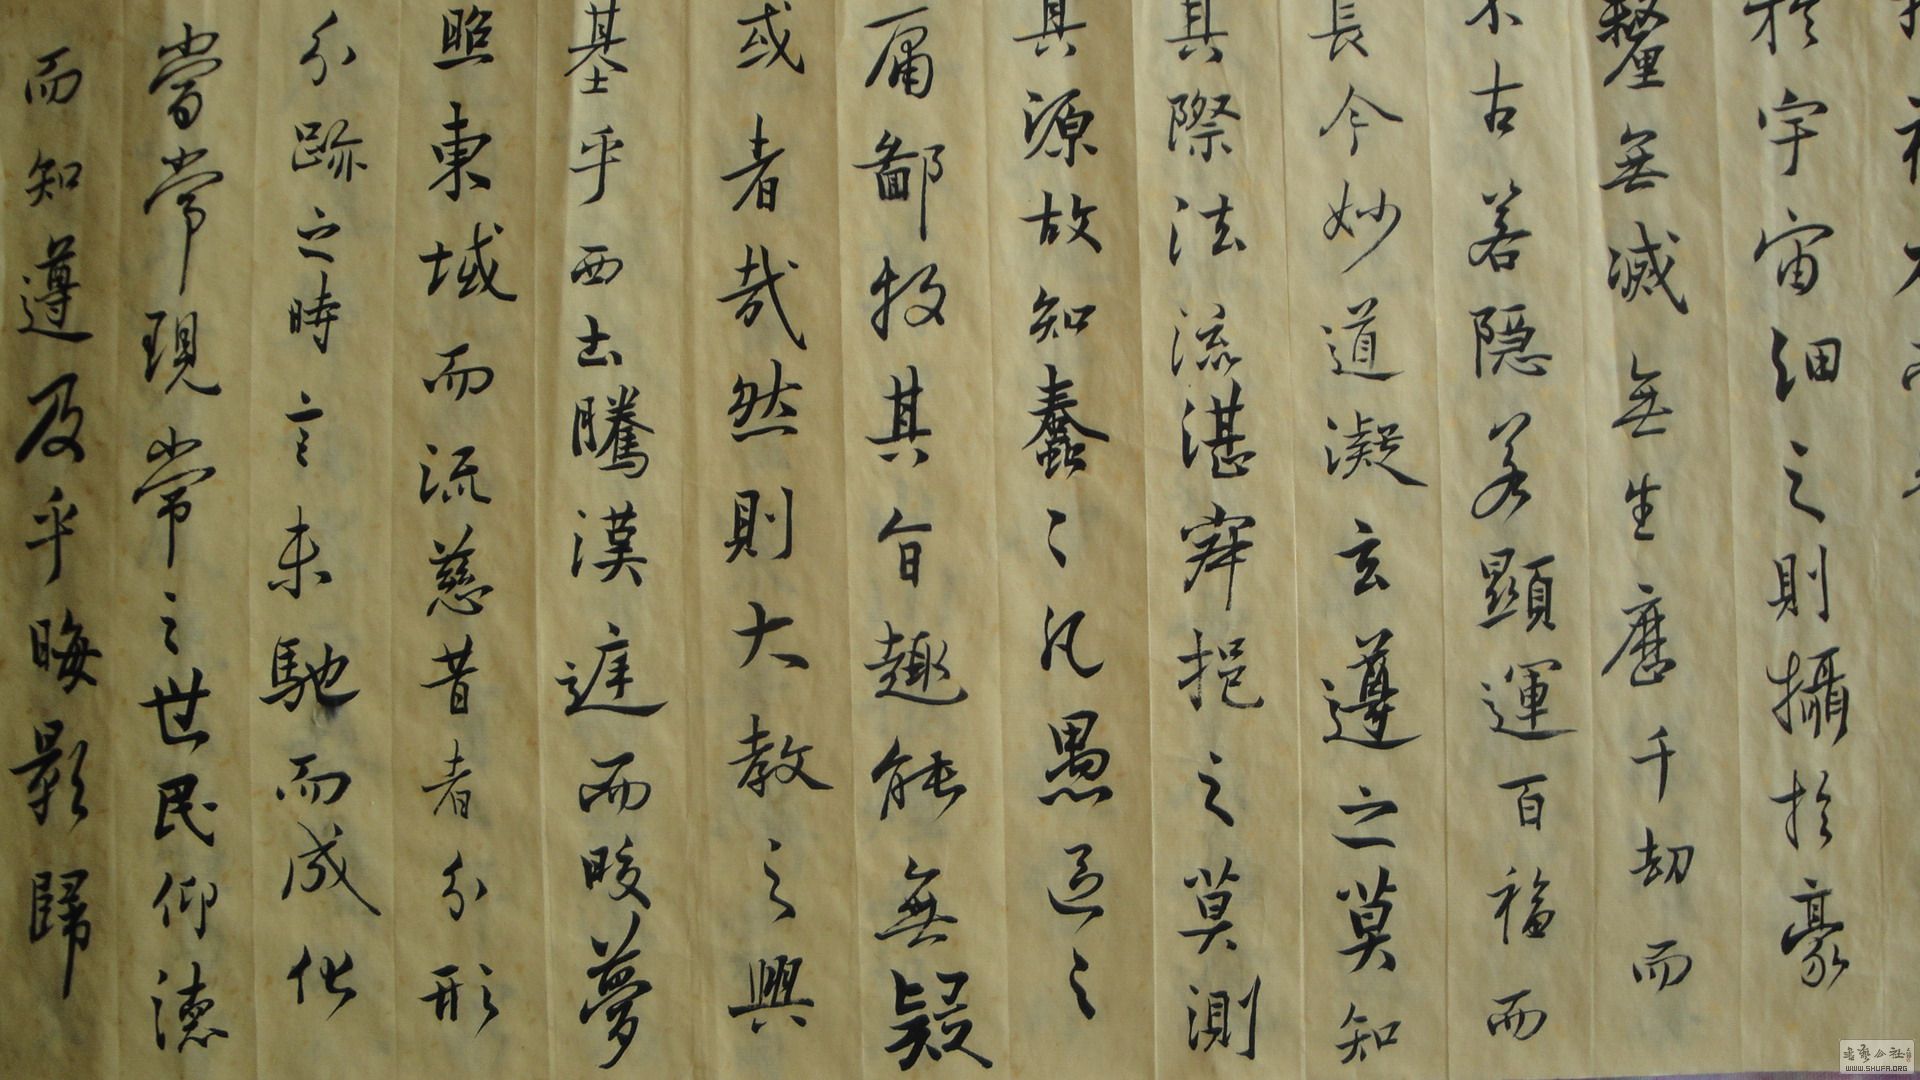 於宇宙細之則攝於豪
釐無滅無生歷千劫而
不古若隱若顯運百福而
長今妙道凝玄遵之莫知
其際法流湛寂挹之莫測
其源故知蠢〻凡愚區〻
庸鄙投其旨趣能無疑
或者哉然則大教之興
基乎西土騰漢庭而皎夢
照東域而流慈昔者分形
分跡之時言未馳而成化
當常現常之世民仰德
而知遵及乎晦影歸
WWW.SHUFA.ORG